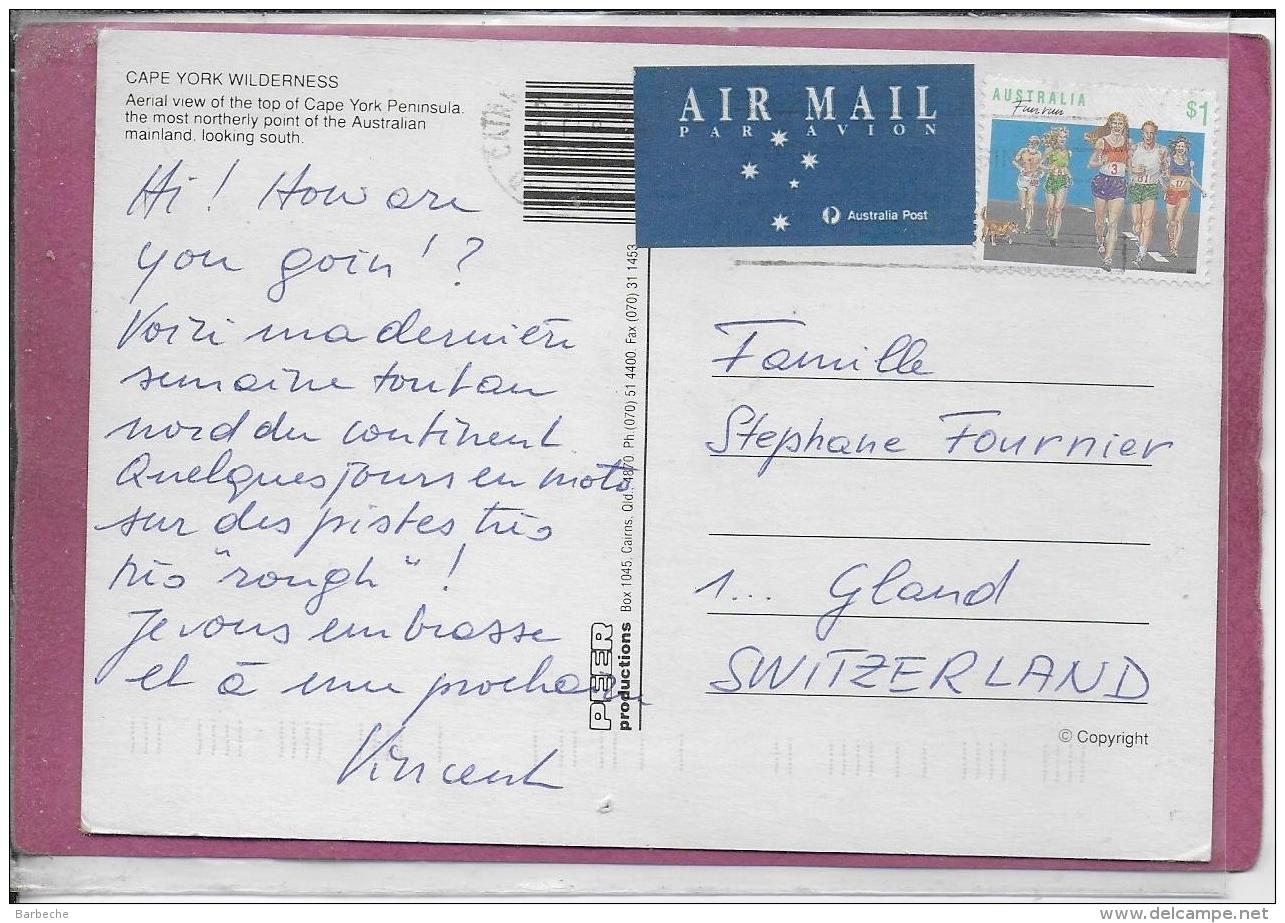 CAPE YORK WILDERNESS
Aerial view of the top of Cape York Peninsula.
the most northerly point of the Australian
mainland. looking south.
Hi! How are
you goin'?
Voici ma dernière
semaine tout au
nord du continent
Quelques jours en moto
sur des pistes très
très "rough"!
Je vous embrasse
et à une prochaine
Vincent
PEER
productions Box 1045, Cairns, Qld., 4870 Ph.(070) 51 4400. Fax (070) 31 1453
AIR MAIL
PAR AVION
Australia Post
AUSTRALIA
Fun run
$1
3
11
17
Famille
Stephane Fournier
1... Gland
SWITZERLAND
© Copyright
Barbeche
delcampe.net